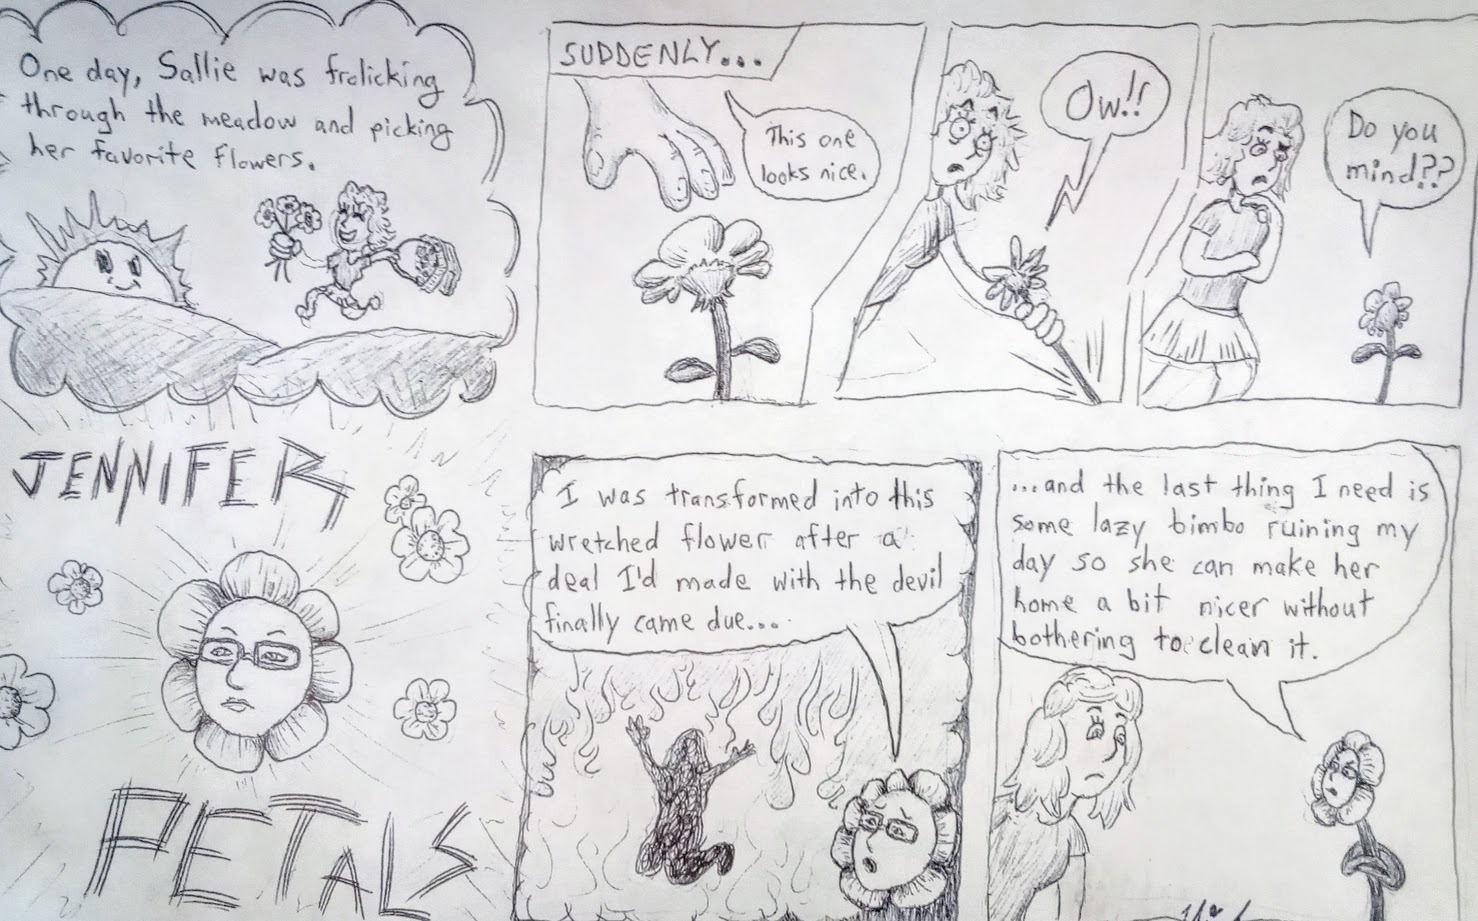 One day, Sallie was frolicking
through the meadow and picking
her favorite flowers.
SUDDENLY...
This one
looks nice.
Ow!!
Do you
mind??
JENNIFER
PETALS
I was transformed into this
wretched flower after a
deal I'd made with the devil
finally came due...
...and the last thing I need is
some lazy bimbo ruining my
day so she can make her
home a bit nicer without
bothering to clean it.